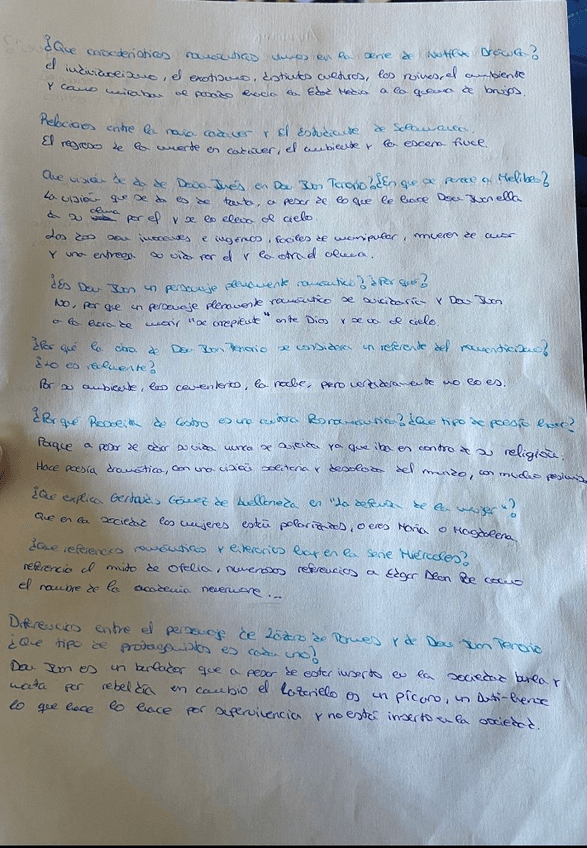 ¿Que características románticas vemos en la serie de Netflix Drácula?
el individualismo, el exotismo, distinta culturas, las ruinas, el ambiente
y como miraban al pasado hacia la Edad Media a la quema de brujas.
Relaciones entre la novia cadáver y El estudiante de Salamanca.
El regreso de la muerte en cadáver, el ambiente y la escena final.
Que visión se da de Doña Inés en Don Juan Tenorio? ¿En que se parece a Melibea?
La visión que se da es de santa, a pesar de lo que le hace Don Juan ella
da su alma por el y se lo lleva al cielo
Las dos son inocentes e ingenuas, fáciles de manipular, mueren de amor
y una entrega su vida por el y la otra el alma.
¿Es Don Juan un personaje plenamente romántico? ¿Por qué?
No, por que un personaje plenamente romántico se suicidaría y Don Juan
a la hora de morir "se arrepiente" ante Dios y se va al cielo.
¿Por qué la obra de Don Juan Tenorio se considera un referente del romanticismo?
¿Lo es realmente?
Por su ambiente, los cementerios, la noche, pero verdaderamente no lo es.
¿Por qué Rosalía de Castro es una autora Romántica? ¿Que tipo de poesía hace?
Porque a pesar de odiar su vida nunca se suicida ya que iba en contra de su religión.
Hace poesía dramática, con una visión solitaria y desolada del mundo, con mucho
¿Que explica Gertrudis Gómez de Avellaneda en "La defensa de la mujer"?
Que en la sociedad las mujeres están polarizadas, o eres María o Magdalena
¿Que referencias románticas y literarias hay en la serie Miércoles?
referencia al mito de Ofelia, numerosas referencias a Edgar Allan Poe como
el nombre de la academia nevermore...
Diferencias entre el personaje de Lázaro de Tormes y de Don Juan Tenorio
¿Que tipo de protagonistas es cada uno?
Don Juan es un burlador que a pesar de estar inserto en la sociedad burla y
mata por rebeldía en cambio el Lazarillo es un pícaro, un Anti-heroe
lo que hace lo hace por supervivencia y no está inserto en la sociedad.